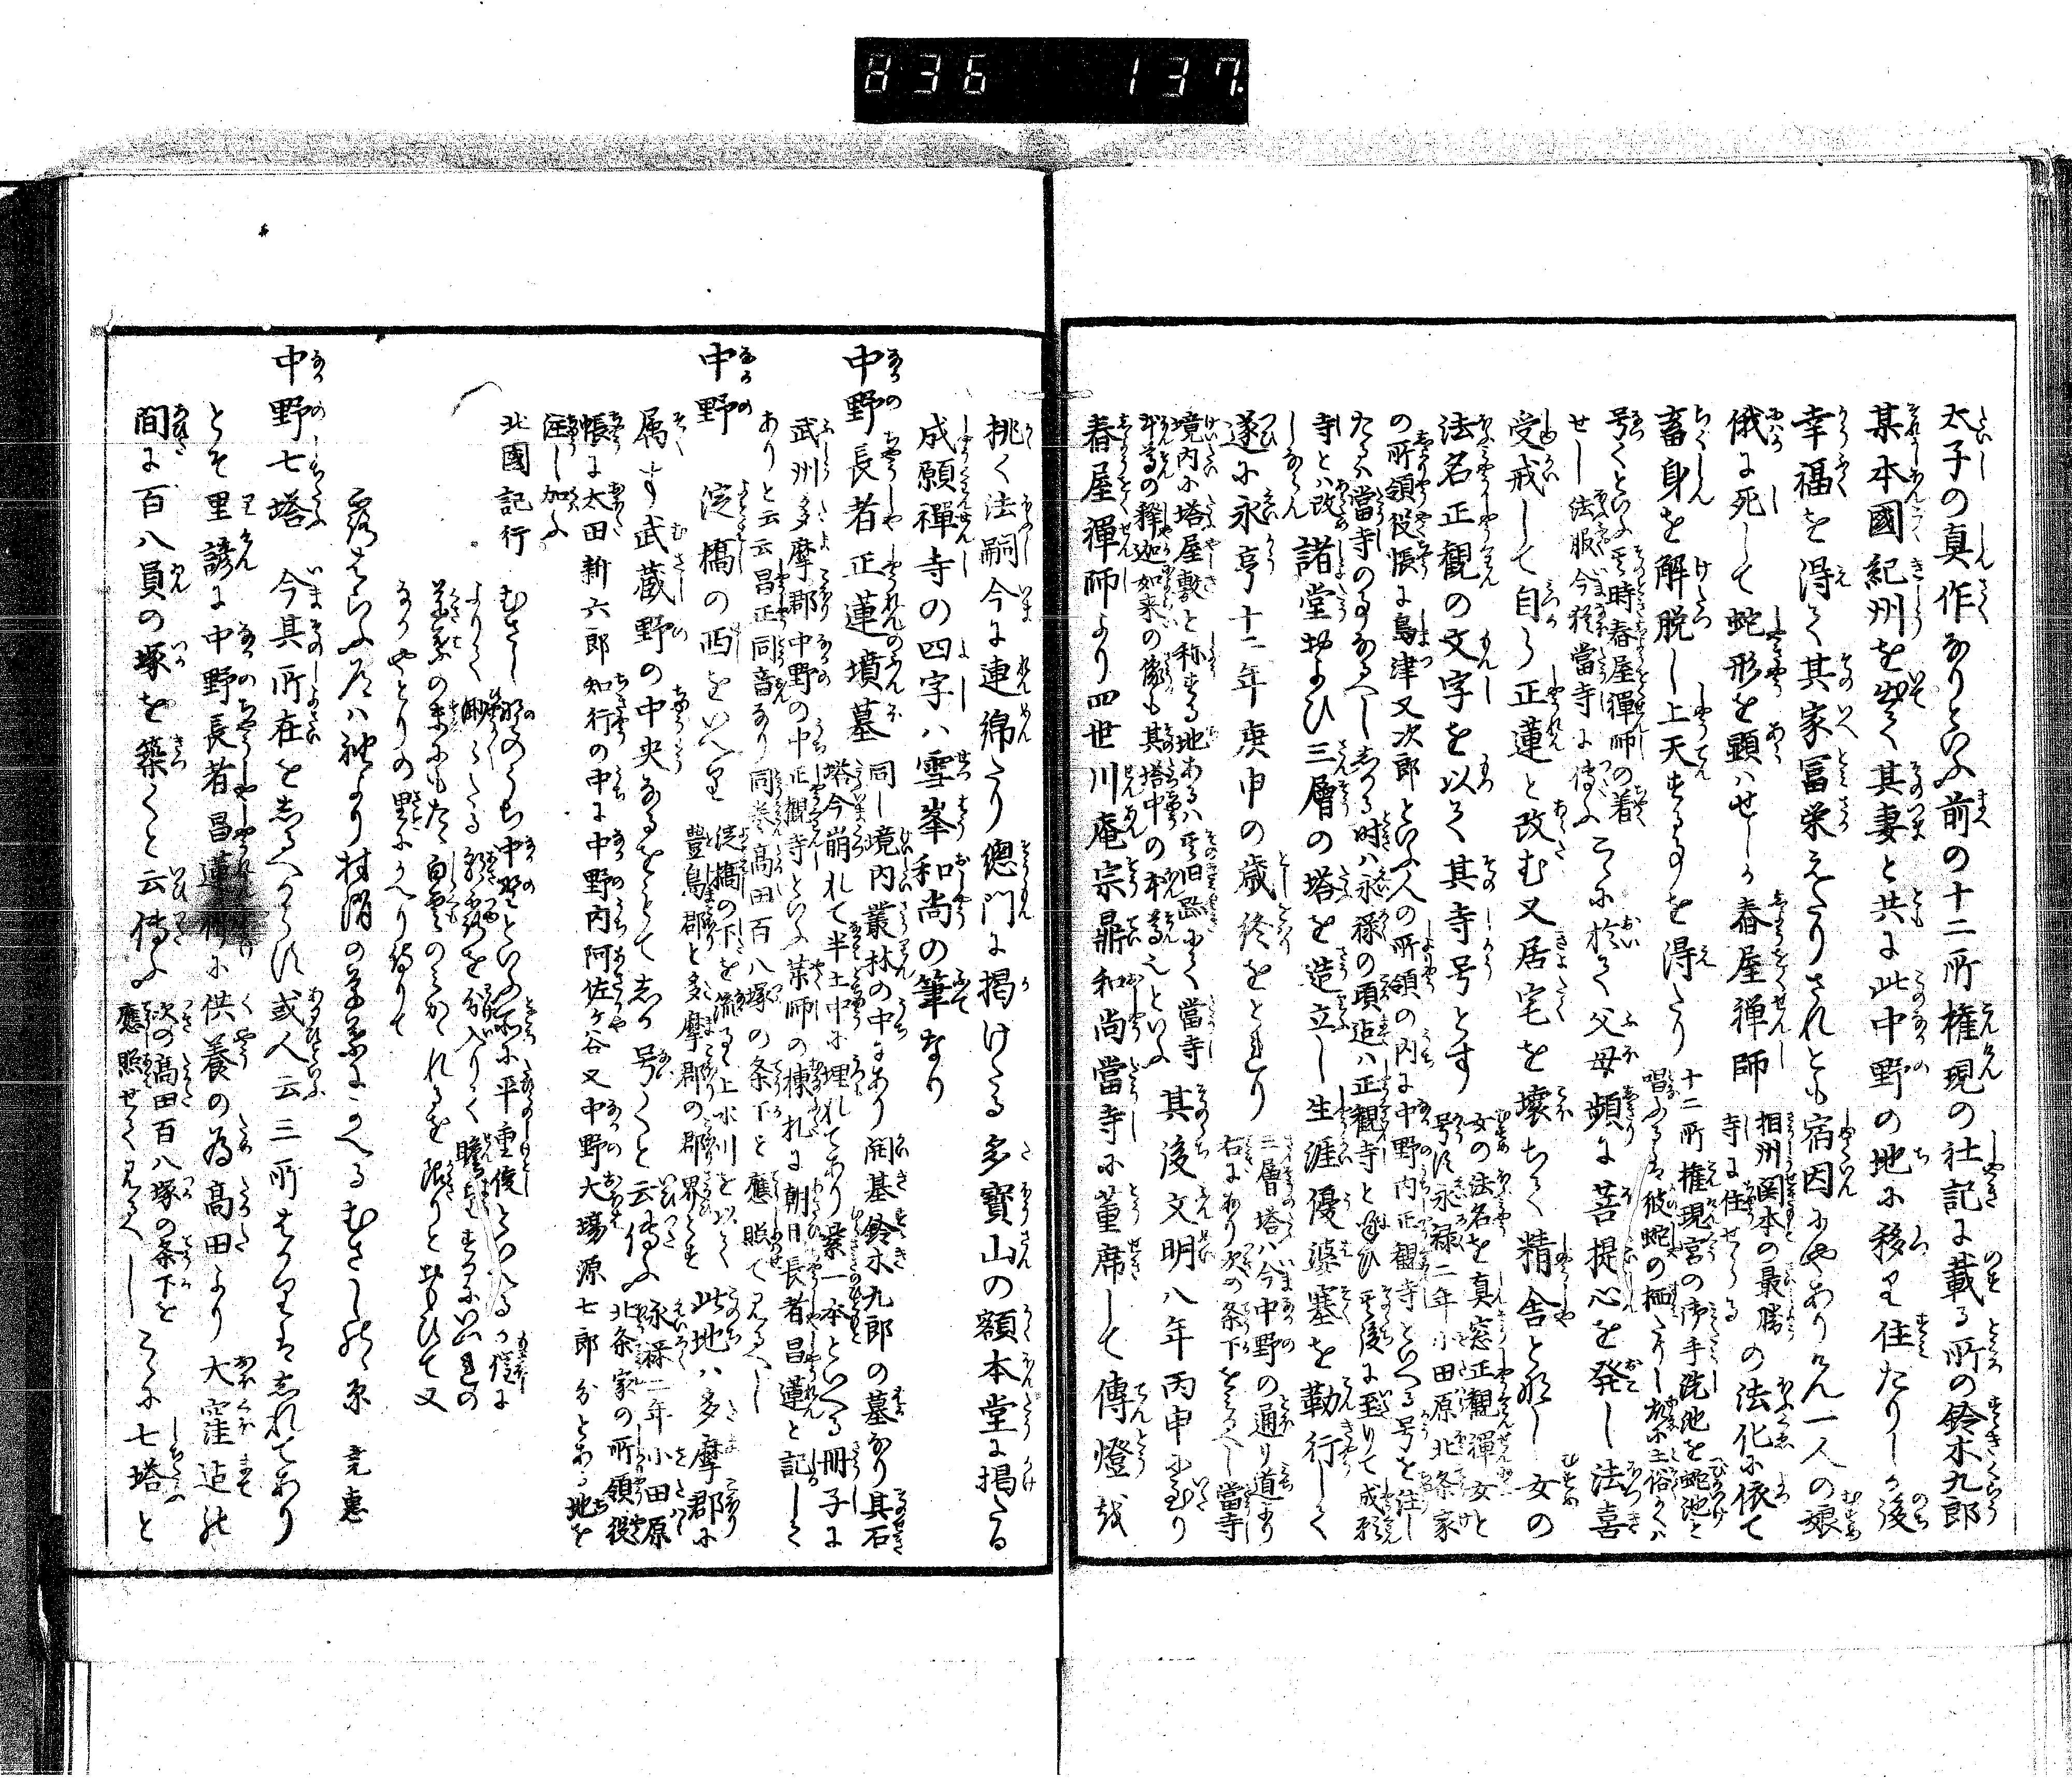 836 137.
太子の真作なりといふ前の十二所権現の社記に載る所の鈴木九郎
某本國紀州を出て其妻と共に此中野の地に移り住たりしか後
幸福を得て其家冨栄えたりされとも宿因にやありけん一人の娘
俄に死して蛇形を顕ハせしかハ春屋禅師
相州関本の最勝
寺に住せらる
の法化に依て
畜身を解脱し上天するを得たり
十二所権現宮の御手洗池を蛇池と
唱ふるは彼蛇の栖たりし故に土俗かくハ
号くといふ其時春屋禪師の着
せし法服今猶當寺に傳ふ
こゝに於て父母頻に菩提心を発し法喜
受戒して自ら正蓮と改む又居宅を壞ちて精舎と為し女の
法名正観の文字を以て其寺号とす
女の法名を真窓正觀禪女と
号す永禄二年小田原北条家
の所領役帳に島津又次郎といふ人の所領の内に中野内正観寺といへる号を注し
たるハ當寺の事なるへししかる時ハ永禄の頃迄ハ正観寺と呼ひ其後に至りて成願
寺とハ改しならん
諸堂およひ三層の塔を造立し生涯優婆塞を勤行して
遂に永亨十二年庚申の歳終をとれり
三層塔ハ今中野の通り道より
右にあり次の条下をみるへし當寺
境内に塔屋敷と称する地あるハ其旧跡にて當寺
本尊の釋迦如来の像も其塔中の本尊也といふ
其後文明八年丙申に至り
春屋禪師より四世川庵宗鼎和尚當寺に董席して傳燈を
挑く法嗣今に連綿たり總門に掲けたる多寳山の額本堂に掲たる
成願禪寺の四字ハ雪峯和尚の筆なり
中野長者正蓮墳墓
同し境内叢林の中にあり開基鈴木九郎の墓なり其石
塔今崩れて半土中に埋れてあり紫一本といへる冊子に
武州多摩郡中野の中正観寺といふ薬師の棟札に朝日長者昌蓮と記して
ありと云云昌正同音なり同巻髙田百八塚の条下と應照てみるへし
中野
淀橋の西をいへり
淀橋の下を流るゝ上水川を以て
豊島郡と多摩郡の郡界とす
此地ハ多摩郡に
属す武蔵野の中央なるをもてしか号くと云傳ふ
永禄二年小田原
北条家の所領役
帳に太田新六郎知行の中に中野内阿佐ヶ谷又中野大場源七郎分とある地を
注し加ふ
北國記行
むさし野のうち中野といふ所に平重俊といへるか催に
よりて眺はるかなる朝露を分入りて瞻望するに山もなの
草葉の末にもたゝ白雲のミかゝれるを限りと思ひて又
なかやとりの里にかへり侍りて
露はらふ道ハ袖より村消の草葉にかへるむさしのゝ原
堯惠
中野七塔
今其所在をしるへからす或人云三所はかりはしれてあり
とそ里諺に中野長者昌蓮佛に供養の為髙田より大窪迄の
間に百八員の塚を築くと云傳ふ
次の髙田百八塚の条下を
應照せてみるへし
こゝに七塔と